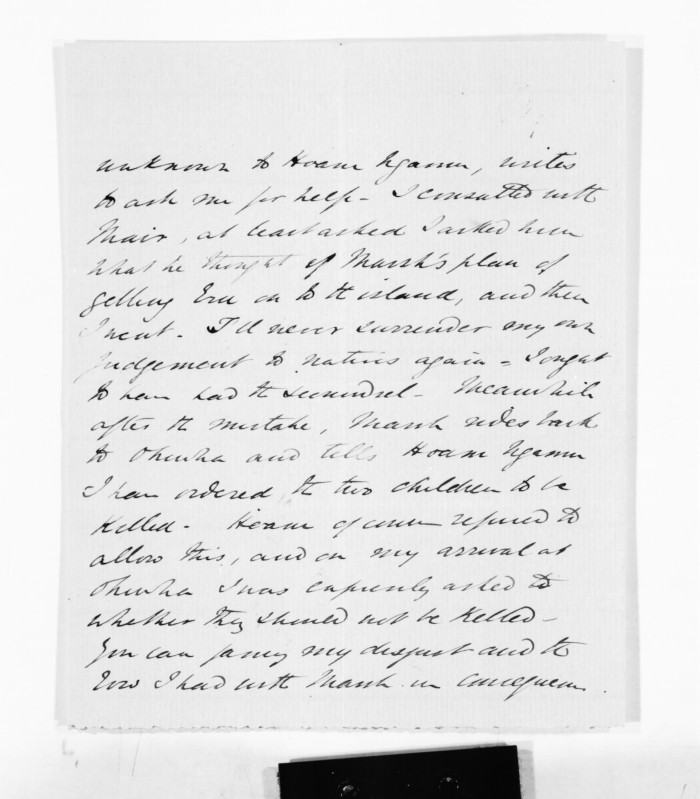 unknown to Hoani Ngamu, writes
to ask me for help - I consulted with
Mair, at least asked I asked him
what he thought of Marsh's plan of
getting Eru on to the island, and then
I went - I'll never surrender my own
judgement to natives again - I ought
to have had the scoundrel - Meanwhile
after the mistake, Marsh rides back
to Ohiwha and tells Hoani Ngamu
I have ordered the two children to be
killed - Hoani of course refused to
allow this, and on my arrival at
Ohiwha I was expressly asked to
whether they should not be killed -
You can fancy my disgust and the
row I had with Marsh in consequence.